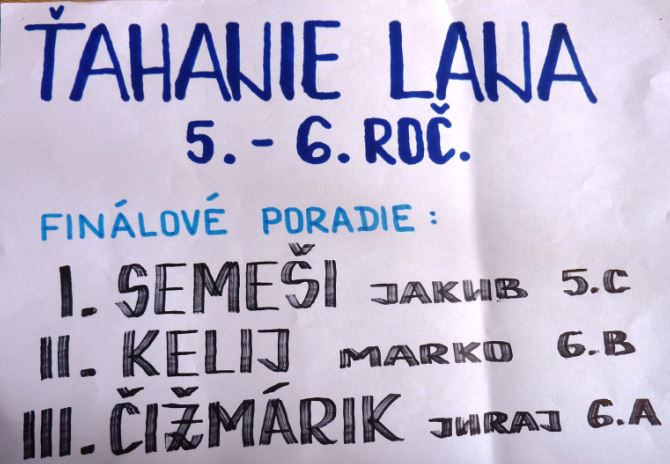 ŤAHANIE LANA
5. - 6. ROČ.
FINÁLOVÉ PORADIE :
I. SEMEŠI JAKUB 5.C
II. KELIJ MARKO 6.B
III. ČIŽMÁRIK JURAJ 6.A